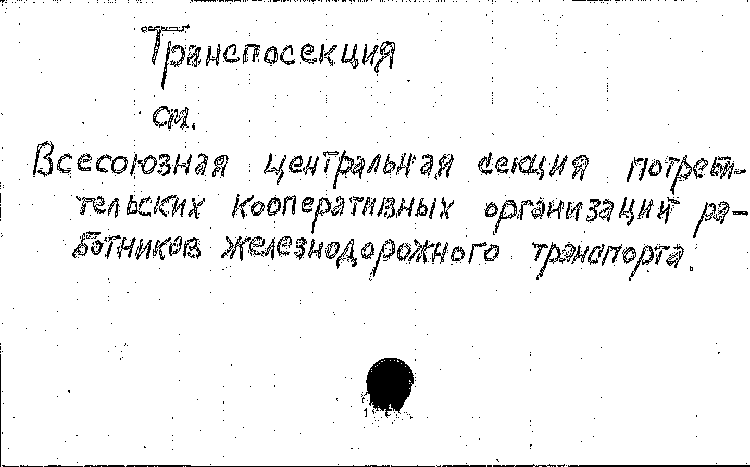 Транспосекция
см.
Всесоюзная центральная секция потреби-
тельских кооперативных организаций ра-
ботников железнодорожного транспорта.